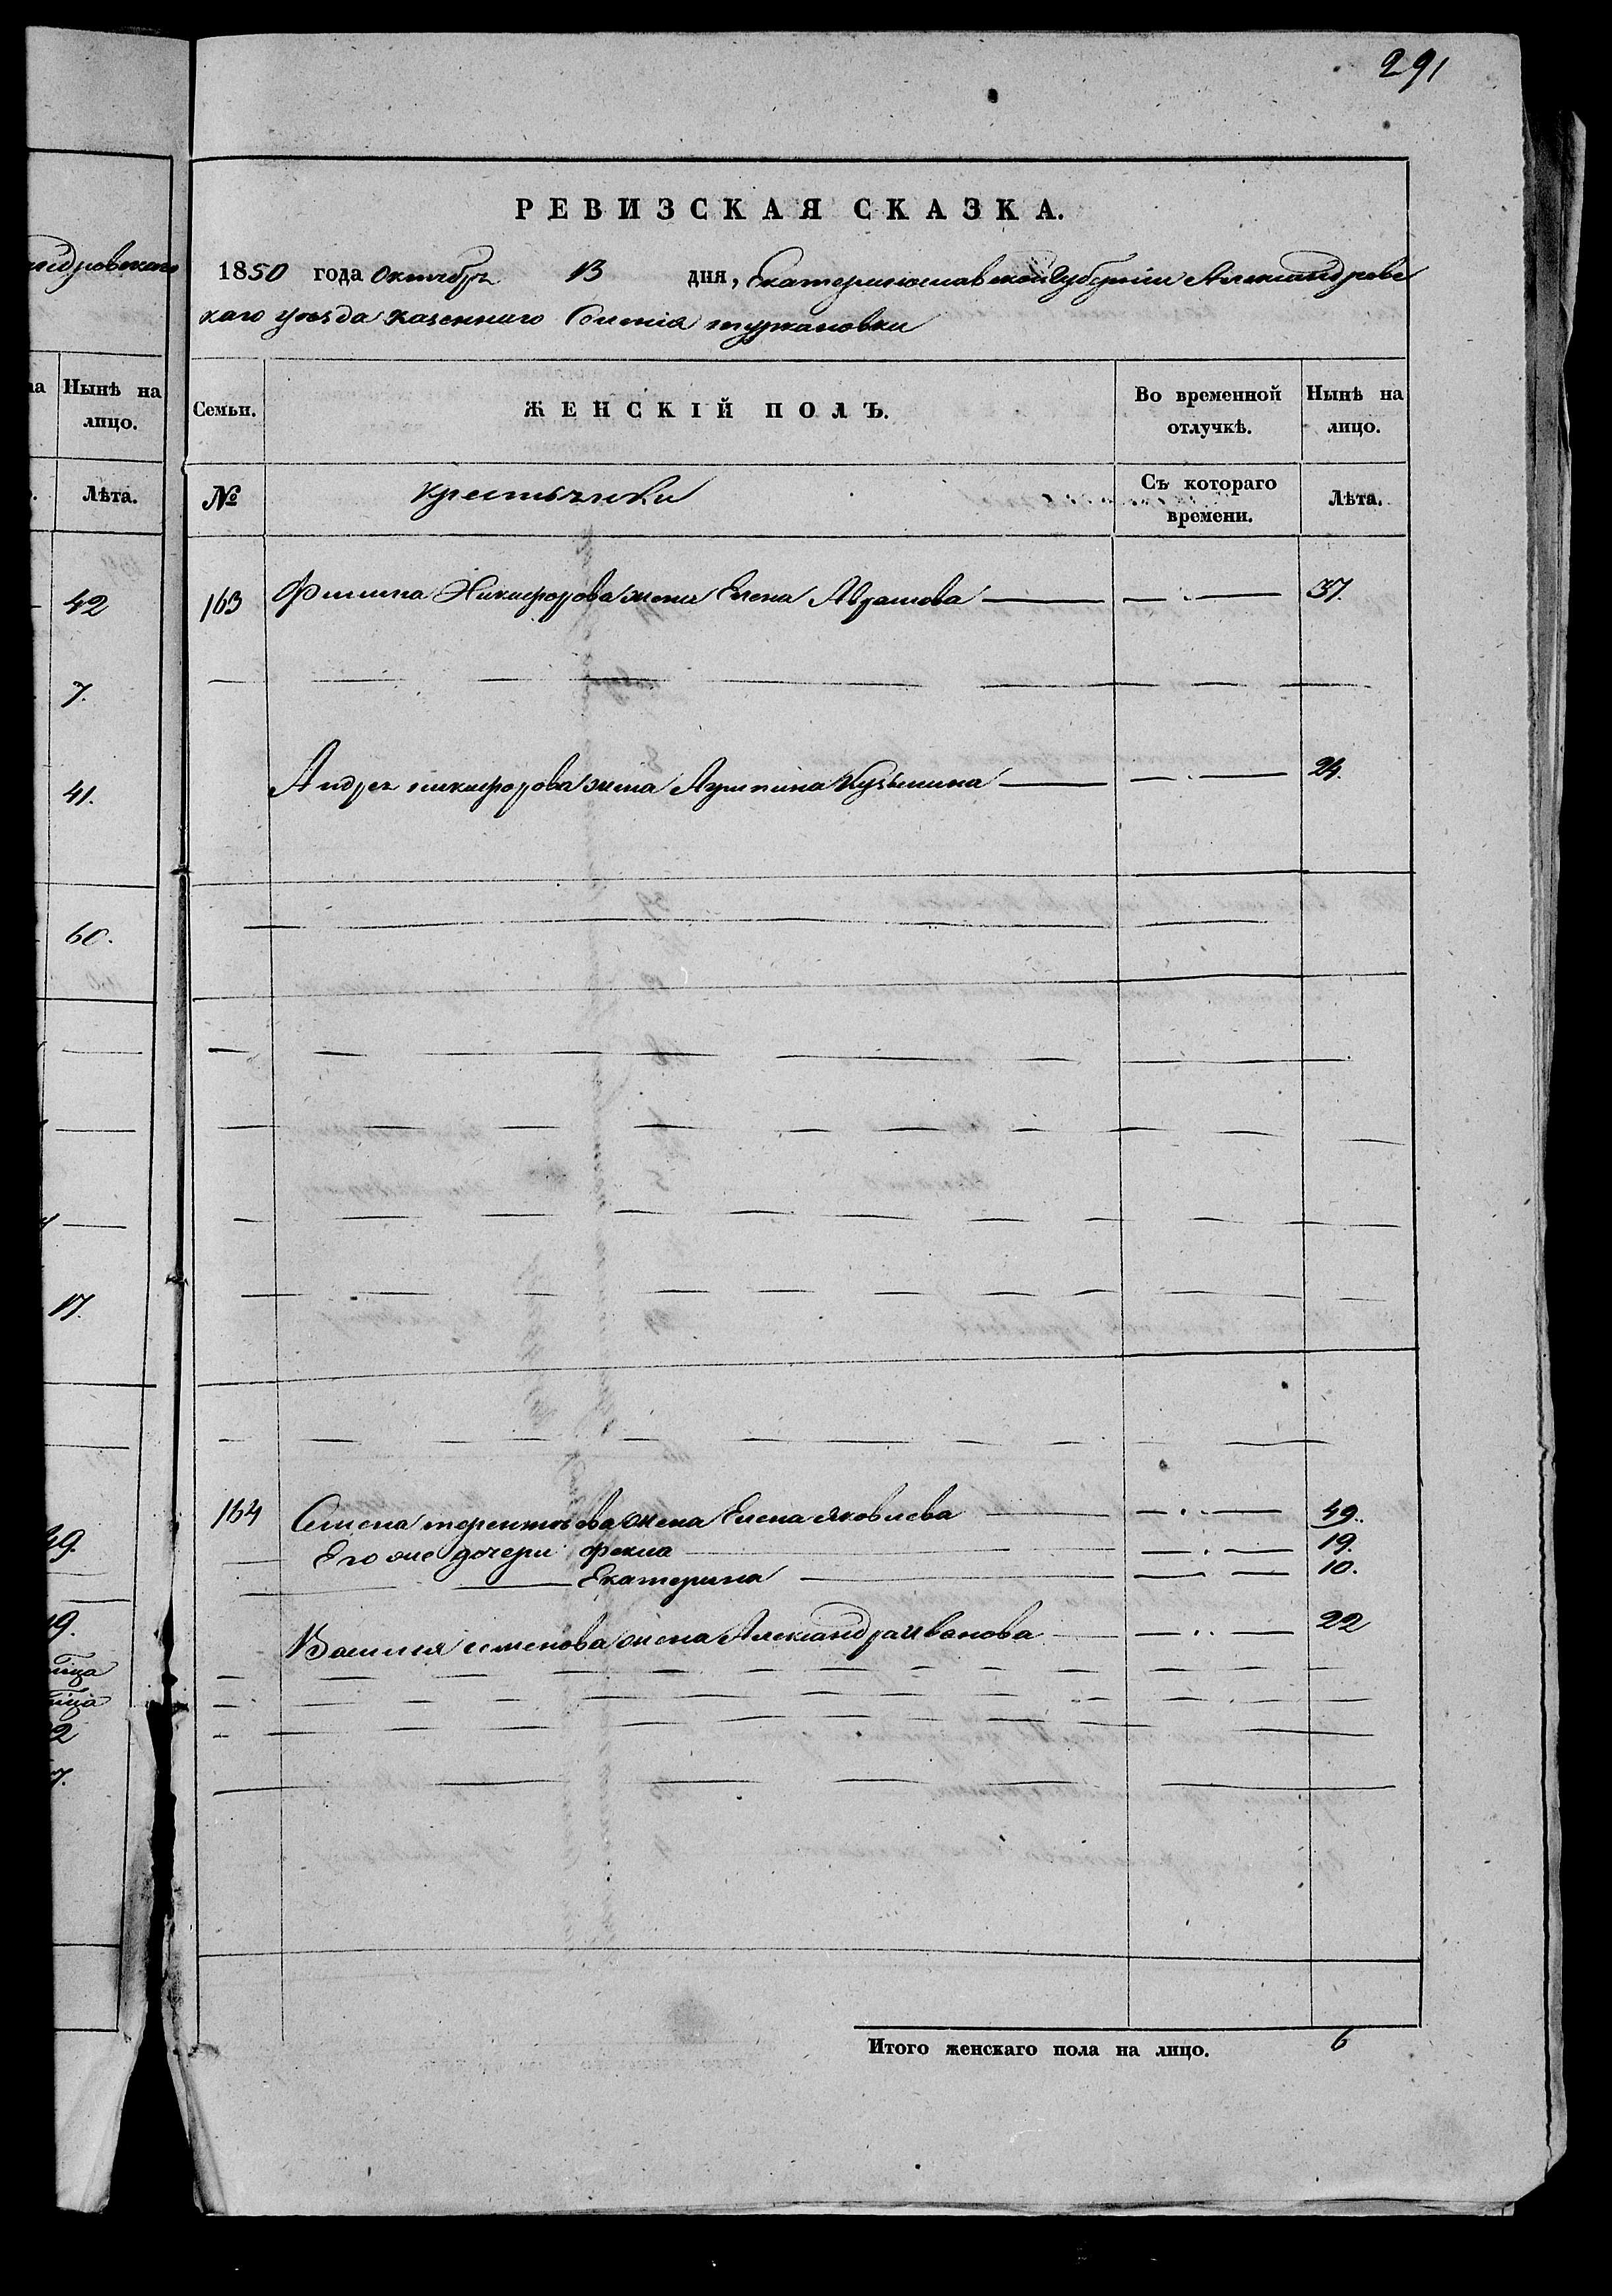 291
ндровскаго
Нынѣ на
лицо.
Лѣта.
42
7.
41.
60.
17.
39.
19.
РЕВИЗСКАЯ СКАЗКА.
1850 года Октября 13 дня, Екатеринославской Губерніи Александровс
каго уѣзда казеннаго Селенія
Семьи. ЖЕНСКІЙ ПОЛЪ. Во временной отлучкѣ. Нынѣ на лицо.
№ крестьянки Съ котораго времени. Лѣта.
163 Филипа Никифорова жена Елена Абрамова 37.
Андрея никифорова жена Кузьмина 24.
164 Семена терентьева жена Елена яковлева 49.
Его же дочери фекла 19.
Екатерина 10.
Василия семенова жена Александра иванова 22
Итого женскаго пола на лицо. 6